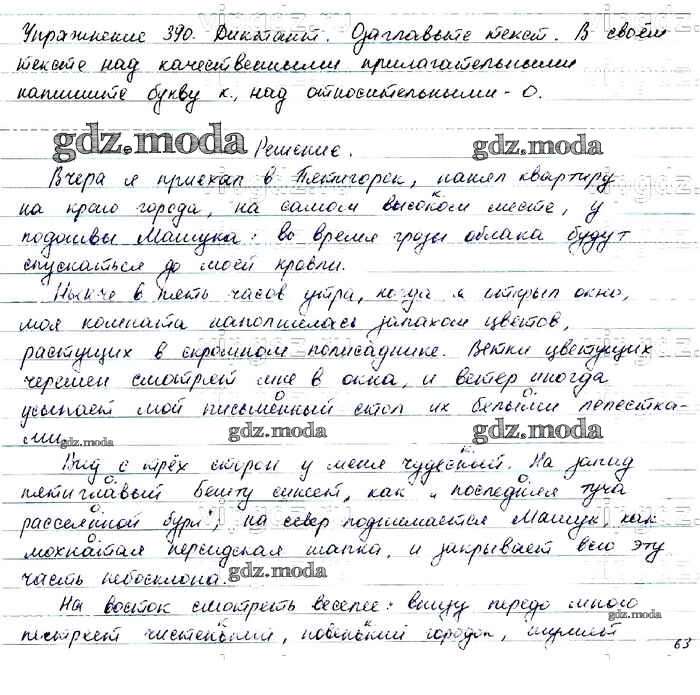 Упражнение 390. Диктант. Озаглавьте текст. В своём
тексте над качественными прилагательными
напишите букву к, над относительными - о.
gdz.moda Решение. gdz.moda
Вчера я приехал в Пятигорск, нанял квартиру
на краю города, на самом высоком месте, у
подошвы Машука: во время грозы облака будут
спускаться до моей кровли.
Нынче в пять часов утра, когда я открыл окно,
моя комната наполнилась запахом цветов,
растущих в скромном полисаднике. Ветки цветущих
черешен смотрят мне в окна, и ветер иногда
усыпает мой письменный стол их белыми лепестка-
ми.
gdz.moda gdz.moda gdz.moda
Вид с трёх сторон у меня чудесный. На запад
пятиглавый Бешту синеет, как "последняя туча
рассеянной бури", на север поднимается Машук, как
мохнатая персидская шапка, и закрывает всю эту
часть небосклона.
gdz.moda
На восток смотреть веселее: внизу передо мною
gdz.moda
пестреет чистенький, новенький городок, шумят
63